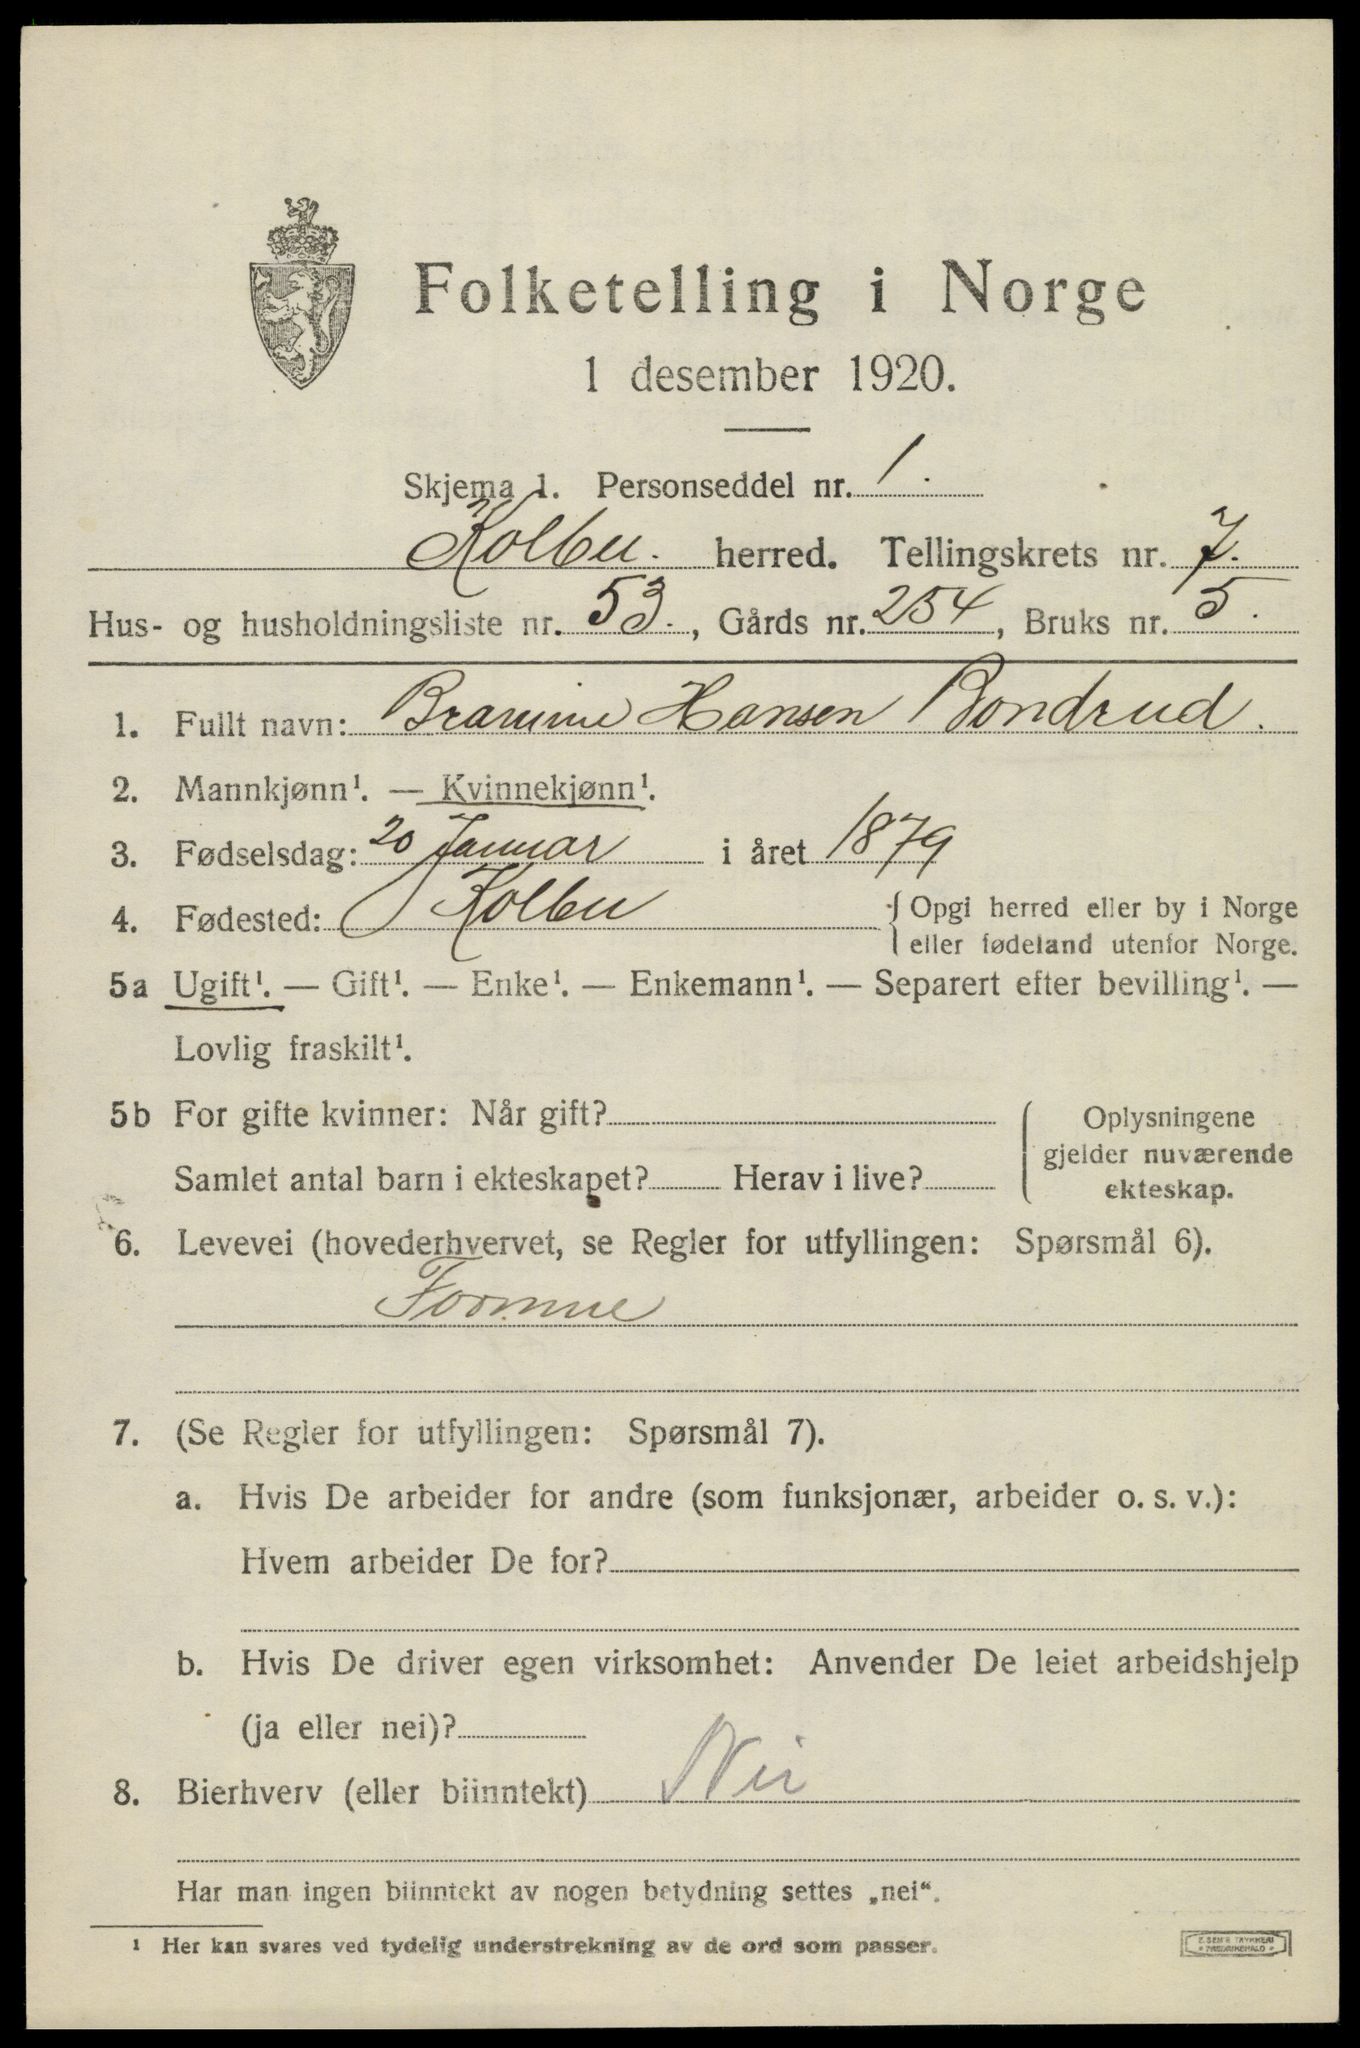 Folketelling i Norge
1 desember 1920.
Skjema 1. Personseddel nr. 1.
Kolbu. herred. Tellingskrets nr. 7.
Hus- og husholdningsliste nr. 53., Gårds nr. 254, Bruks nr. 5.
1. Fullt navn: Bramine Hansen Bondrud.
2. Mannkjønn¹. — Kvinnekjønn¹.
3. Fødselsdag: 20 Januar i året 1879
4. Fødested: Kolbu { Opgi herred eller by i Norge
eller fødeland utenfor Norge.
5a Ugift¹. — Gift¹. — Enke¹. — Enkemann¹. — Separert efter bevilling¹. —
Lovlig fraskilt¹.
5b For gifte kvinner: Når gift?
Samlet antal barn i ekteskapet? Herav i live?
Oplysningene
gjelder nuværende
ekteskap.
6. Levevei (hovederhvervet, se Regler for utfyllingen: Spørsmål 6).
Formue
7. (Se Regler for utfyllingen: Spørsmål 7).
a. Hvis De arbeider for andre (som funksjonær, arbeider o. s. v.):
Hvem arbeider De for?
b. Hvis De driver egen virksomhet: Anvender De leiet arbeidshjelp
(ja eller nei)?
8. Bierhverv (eller biinntekt) Nei
Har man ingen biinntekt av nogen betydning settes „nei“.
¹ Her kan svares ved tydelig understrekning av de ord som passer.